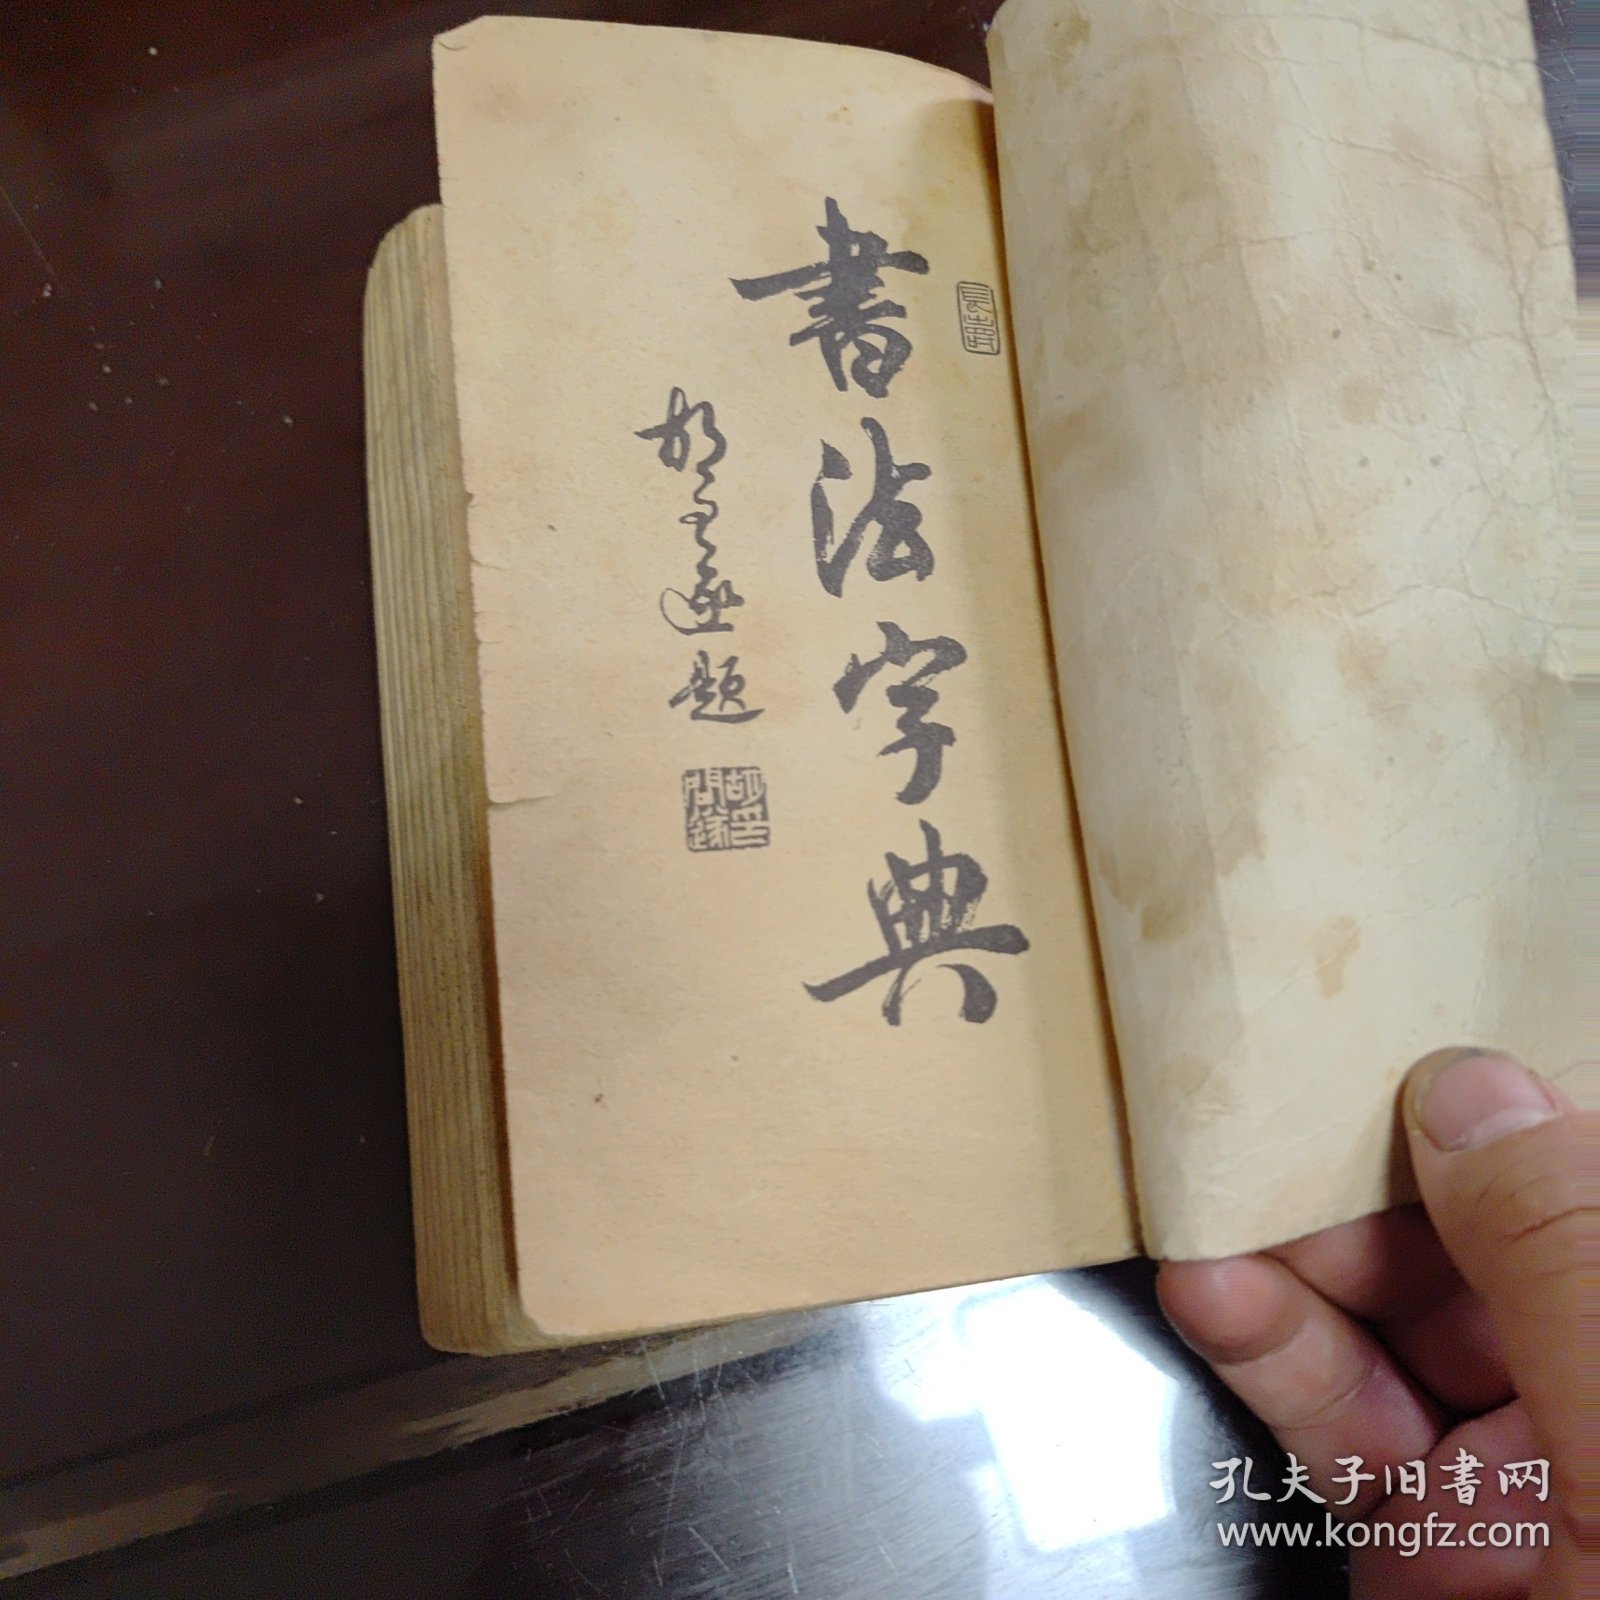 書法字典
胡问遂题
胡印
問遂
孔夫子旧書网
www.kongfz.com